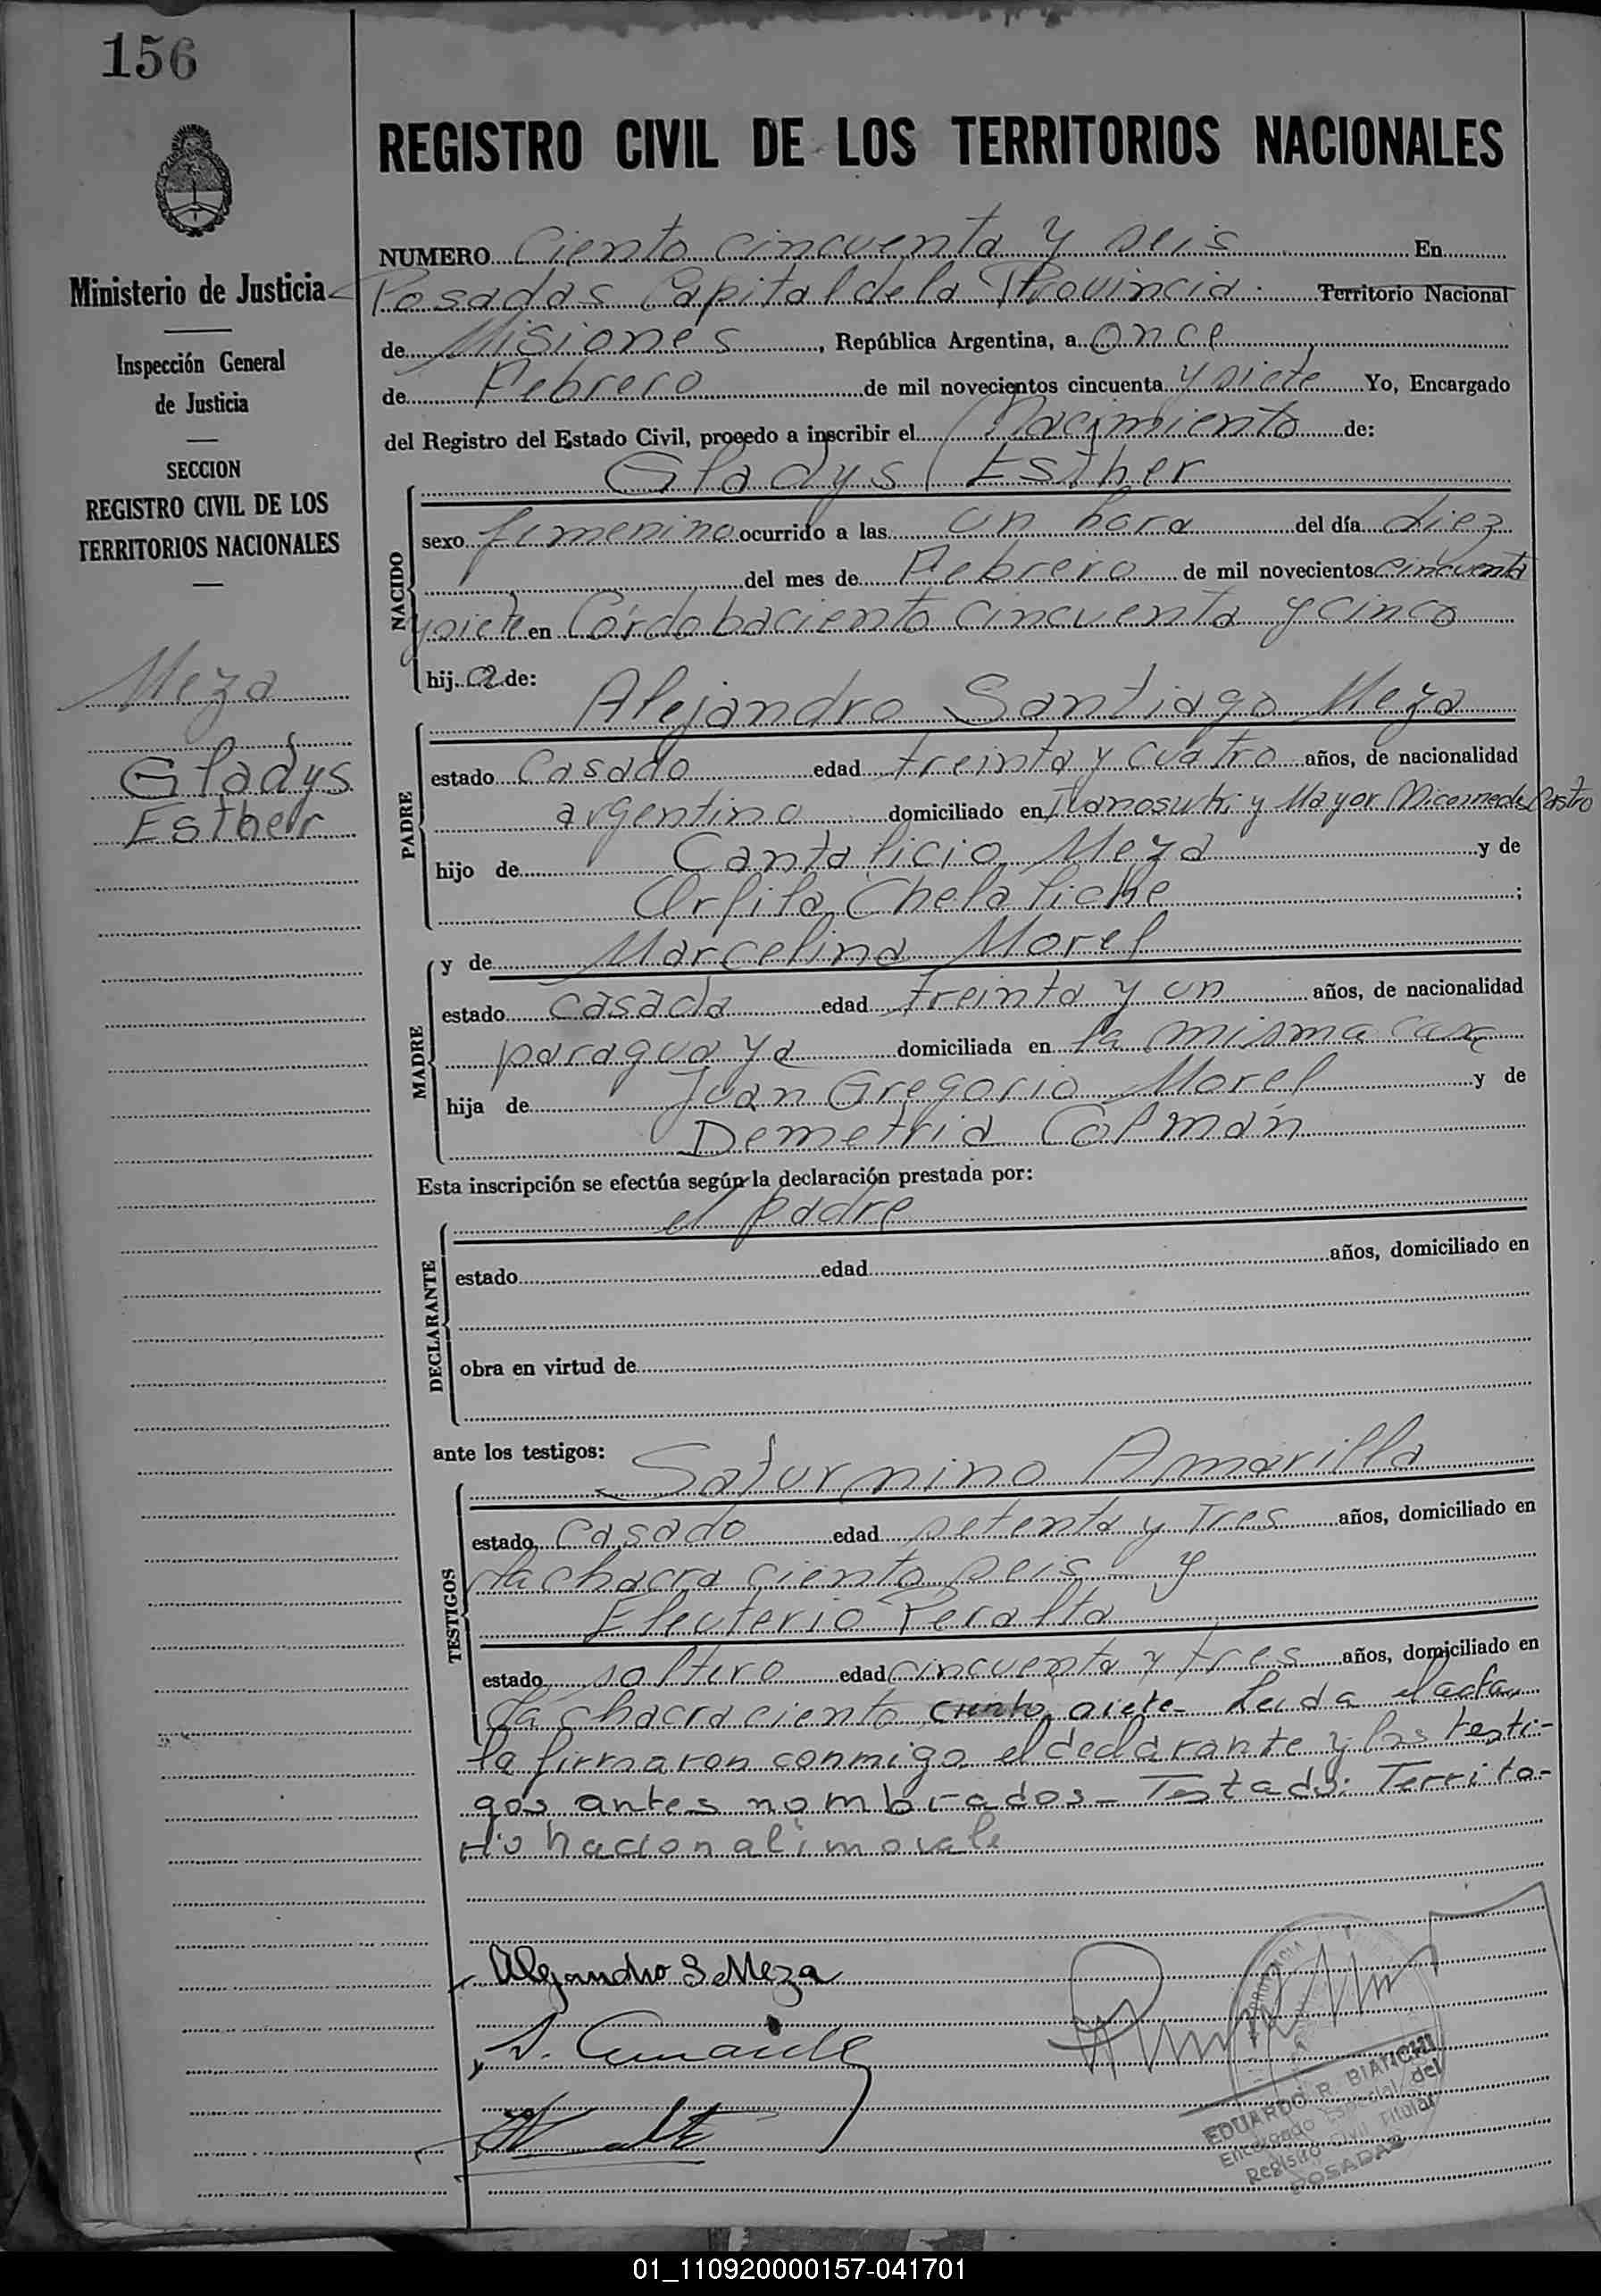 156
REGISTRO CIVIL DE LOS TERRITORIOS NACIONALES
Ministerio de Justicia
Inspección General
de Justicia
SECCION
REGISTRO CIVIL DE LOS
TERRITORIOS NACIONALES
Meza
Gladys
Esther
NUMERO Ciento cincuenta y seis En
Posadas Capital de la Provincia Territorio Nacional
de Misiones, República Argentina, a once
de Febrero de mil novecientos cincuenta y siete Yo, Encargado
del Registro del Estado Civil, procedo a inscribir el Nacimiento de:
NACIDO
Gladys Esther
sexo femenino ocurrido a las un hora del día diez
del mes de Febrero de mil novecientos cincuenta
y siete en Córdoba ciento cincuenta y cinco
hij a de:
PADRE
Alejandro Santiago Meza
estado casado edad treinta y cuatro años, de nacionalidad
argentino domiciliado en y Mayor Castro
hijo de Cantalicio Meza y de
Orfila ;
MADRE
y de Marcelina Morel
estado casada edad treinta y un años, de nacionalidad
paraguaya domiciliada en la misma casa
hija de Juan Gregorio Morel y de
Demetria Colmán
Esta inscripción se efectúa según la declaración prestada por:
DECLARANTE
el padre
estado edad años, domiciliado en
obra en virtud de
ante los testigos:
TESTIGOS
Saturnino Amarilla
estado casado edad setenta y tres años, domiciliado en
la chacra ciento seis y
Eleuterio Peralta
estado soltero edad cincuenta y tres años, domiciliado en
la chacra ciento ciento siete- Leida el acta,
la firmaron conmigo el declarante y los testi-
gos antes nombrados- Testado: Territo-
rio nacional: no vale
Alejandro S Meza
EDUARDO R. BIANCHI
Encargado Especial del
Registro Civil Titular
POSADAS
01_110920000157-041701